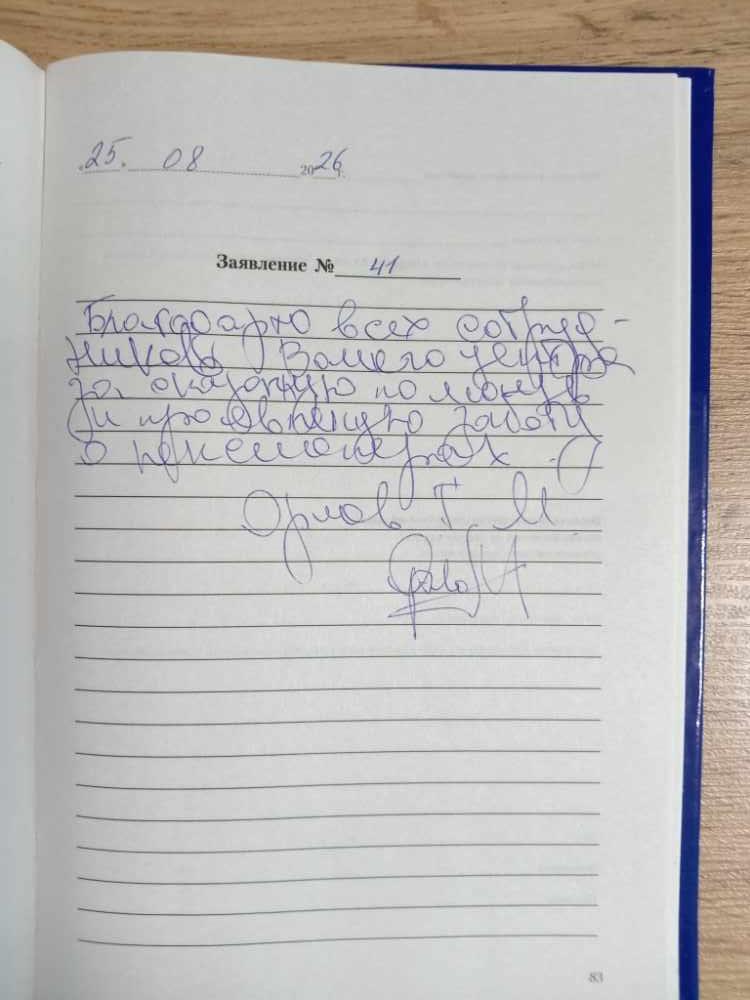 25. 08 2026 г.
Заявление № 41
Благодарю всех сотруд-
ников Вашего центра
за оказанную помощь
и проявленную заботу
о пенсионерах.
Орлов Г М
83